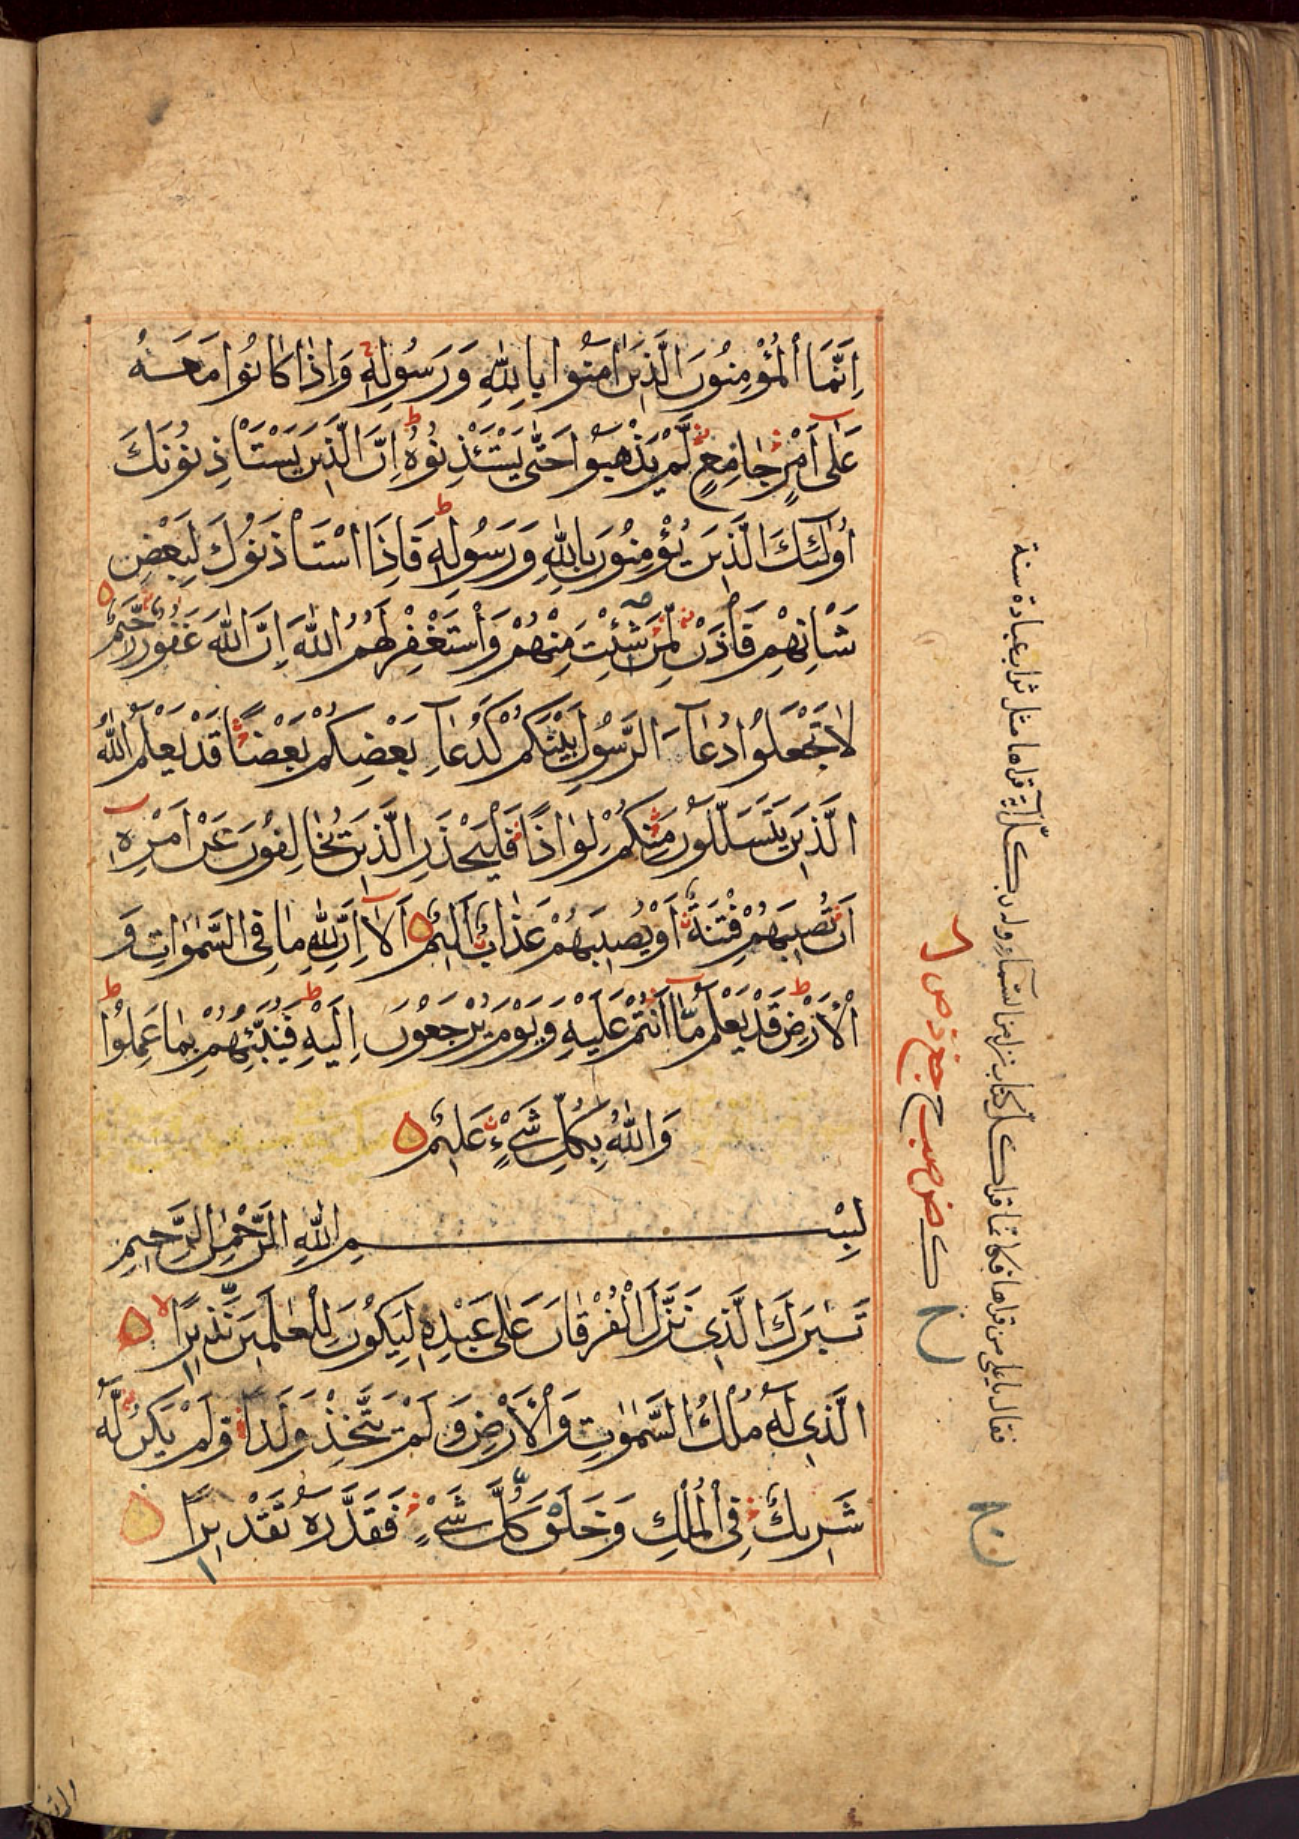 اِنَّمَا الْمُؤْمِنُونَ الَّذِينَ اٰمَنُوا بِاللّٰهِ وَرَسُولِهِ وَاِذَا كَانُوا مَعَهُ
عَلٰى اَمْرٍ جَامِعٍ لَّمْ يَذْهَبُوا حَتّٰى يَسْتَئْذِنُوهُ اِنَّ الَّذِينَ يَسْتَاْذِنُونَكَ
اُولٰئِكَ الَّذِينَ يُؤْمِنُونَ بِاللّٰهِ وَرَسُولِهِ فَاِذَا اسْتَاْذَنُوكَ لِبَعْضِ
شَاْنِهِمْ فَاْذَنْ لِّمَنْ شِئْتَ مِنْهُمْ وَاسْتَغْفِرْ لَهُمُ اللّٰهَ اِنَّ اللّٰهَ غَفُورٌ رَّحِيمٌ
لَا تَجْعَلُوا دُعَآءَ الرَّسُولِ بَيْنَكُمْ كَدُعَآءِ بَعْضِكُمْ بَعْضًا قَدْ يَعْلَمُ اللّٰهُ
الَّذِينَ يَتَسَلَّلُونَ مِنْكُمْ لِوَاذًا فَلْيَحْذَرِ الَّذِينَ يُخَالِفُونَ عَنْ اَمْرِهِ
اَنْ تُصِيبَهُمْ فِتْنَةٌ اَوْ يُصِيبَهُمْ عَذَابٌ اَلِيمٌ اَلَآ اِنَّ لِلّٰهِ مَا فِى السَّمٰوَاتِ وَ
الْاَرْضِ قَدْ يَعْلَمُ مَآ اَنْتُمْ عَلَيْهِ وَيَوْمَ يُرْجَعُونَ اِلَيْهِ فَيُنَبِّئُهُمْ بِمَا عَمِلُوا
وَاللّٰهُ بِكُلِّ شَىْءٍ عَلِيمٌ
بِسْمِ اللّٰهِ الرَّحْمٰنِ الرَّحِيمِ
تَبٰرَكَ الَّذِى نَزَّلَ الْفُرْقَانَ عَلٰى عَبْدِهِ لِيَكُونَ لِلْعٰلَمِينَ نَذِيرًا
الَّذِى لَهُ مُلْكُ السَّمٰوٰتِ وَالْاَرْضِ وَلَمْ يَتَّخِذْ وَلَدًا وَلَمْ يَكُنْ لَّهُ
شَرِيكٌ فِى الْمُلْكِ وَخَلَقَ كُلَّ شَىْءٍ فَقَدَّرَهُ تَقْدِيرًا
فقال يا على من قراها فكانما قرا كل كتاب نزل من السماء وله بكل آية قراها مثل ثواب عبادة سنة